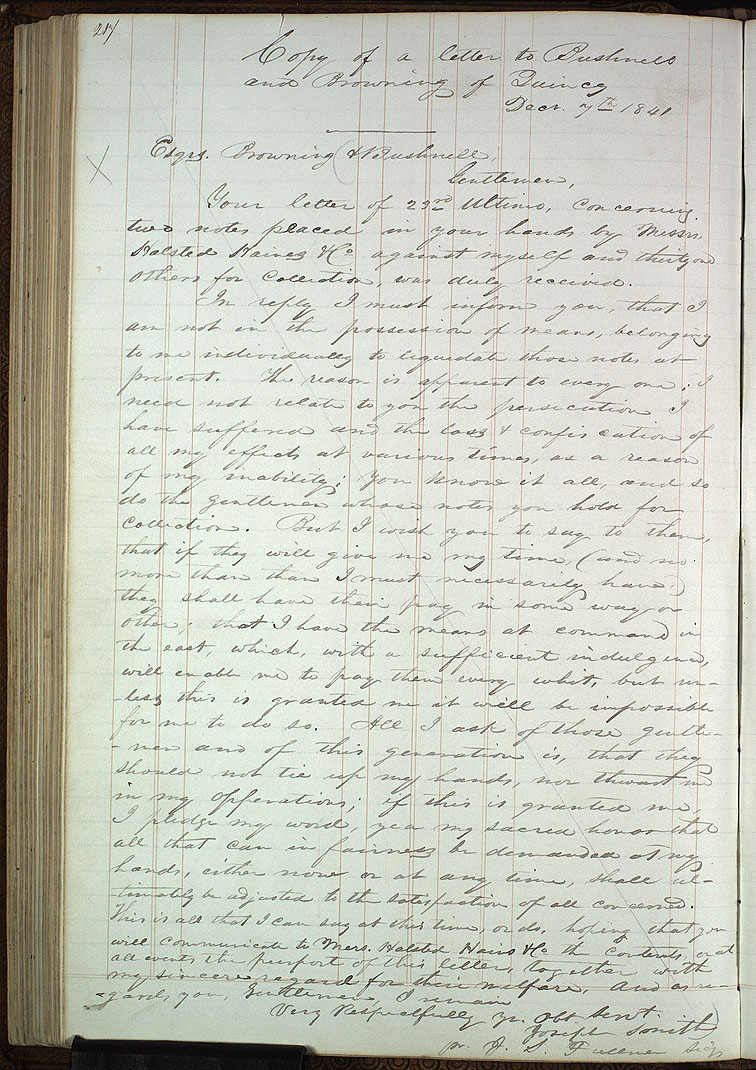 217
Copy of a letter to Bushnell
and Browning of Quincy
Decr. 7th 1841
Esqrs. Browning & Bushnell,
Gentlemen,
Your letter of 23rd Ultimo, concerning
two notes placed in your hands by Messrs.
Halsted Haines & Co. against myself and thirty one
others for Collection, was duly received.
In reply I must inform you, that I
am not in the possession of means, belonging
to me individually to liquidate those notes at
present. The reason is apparent to every one; I
need not relate to you the persecution I
have suffered and the loss & confiscation of
all my effects at various times, as a reason
of my inability; You know it all, and so
do the gentlemen whose notes you hold for
Collection. But I wish you to say to them,
that if they will give me my time, (and no
more than than I must necessarily have)
they shall have their pay in some way or
other; that I have the means at command in
the east, which, with a sufficient indulgence,
will enable me to pay them every whit, but un-
-less this is granted me it will be impossible
for me to do so. All I ask of those gentle-
-men and of this generation is, that they
should not tie up my hands, nor thwart me
in my opperations; if this is granted me,
I pledge my word, yea my sacred honor that
all that can in fairness be demanded at my
hands, either now or at any time, shall ul-
-timately be adjusted to the satisfaction of all concerned.
This is all that I can say at this time, or do, hoping that you
will communicate to Mers. Halsted Hains & Co. the contents, or at
all events the purport of this letter, together with
my sincere regard for their welfare, and as re-
-gards you, Gentlemen, I remain
Very Respectfully yr. Obt Servt.
Joseph Smith
pr. J. S. Fullmer